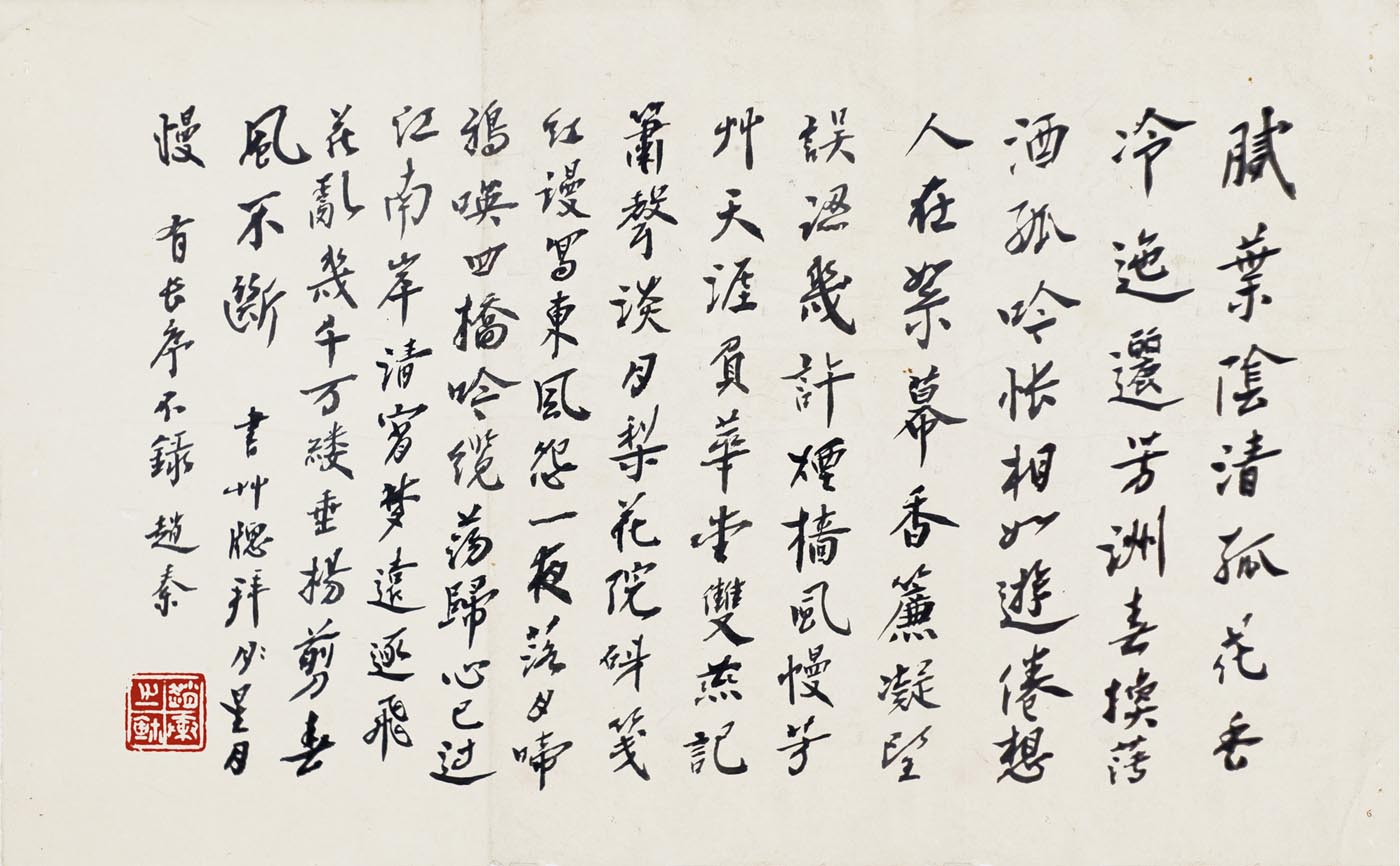 膩葉陰清孤花香
冷迤邐芳洲春換薄
酒孤吟悵相如遊倦想
人在絮幕香簾凝望
誤認幾許煙檣風慢芳
艸天涯負華堂雙燕記
簫聲淡月梨花院砑箋
紅謾寫東風怨一夜落月啼
鴉喚四橋吟纜蕩歸心已过
江南岸清宵梦遠逐飛
花亂幾千万縷垂楊剪春
風不斷 書艸牕拜星月
慢 有长序不錄 趙秦